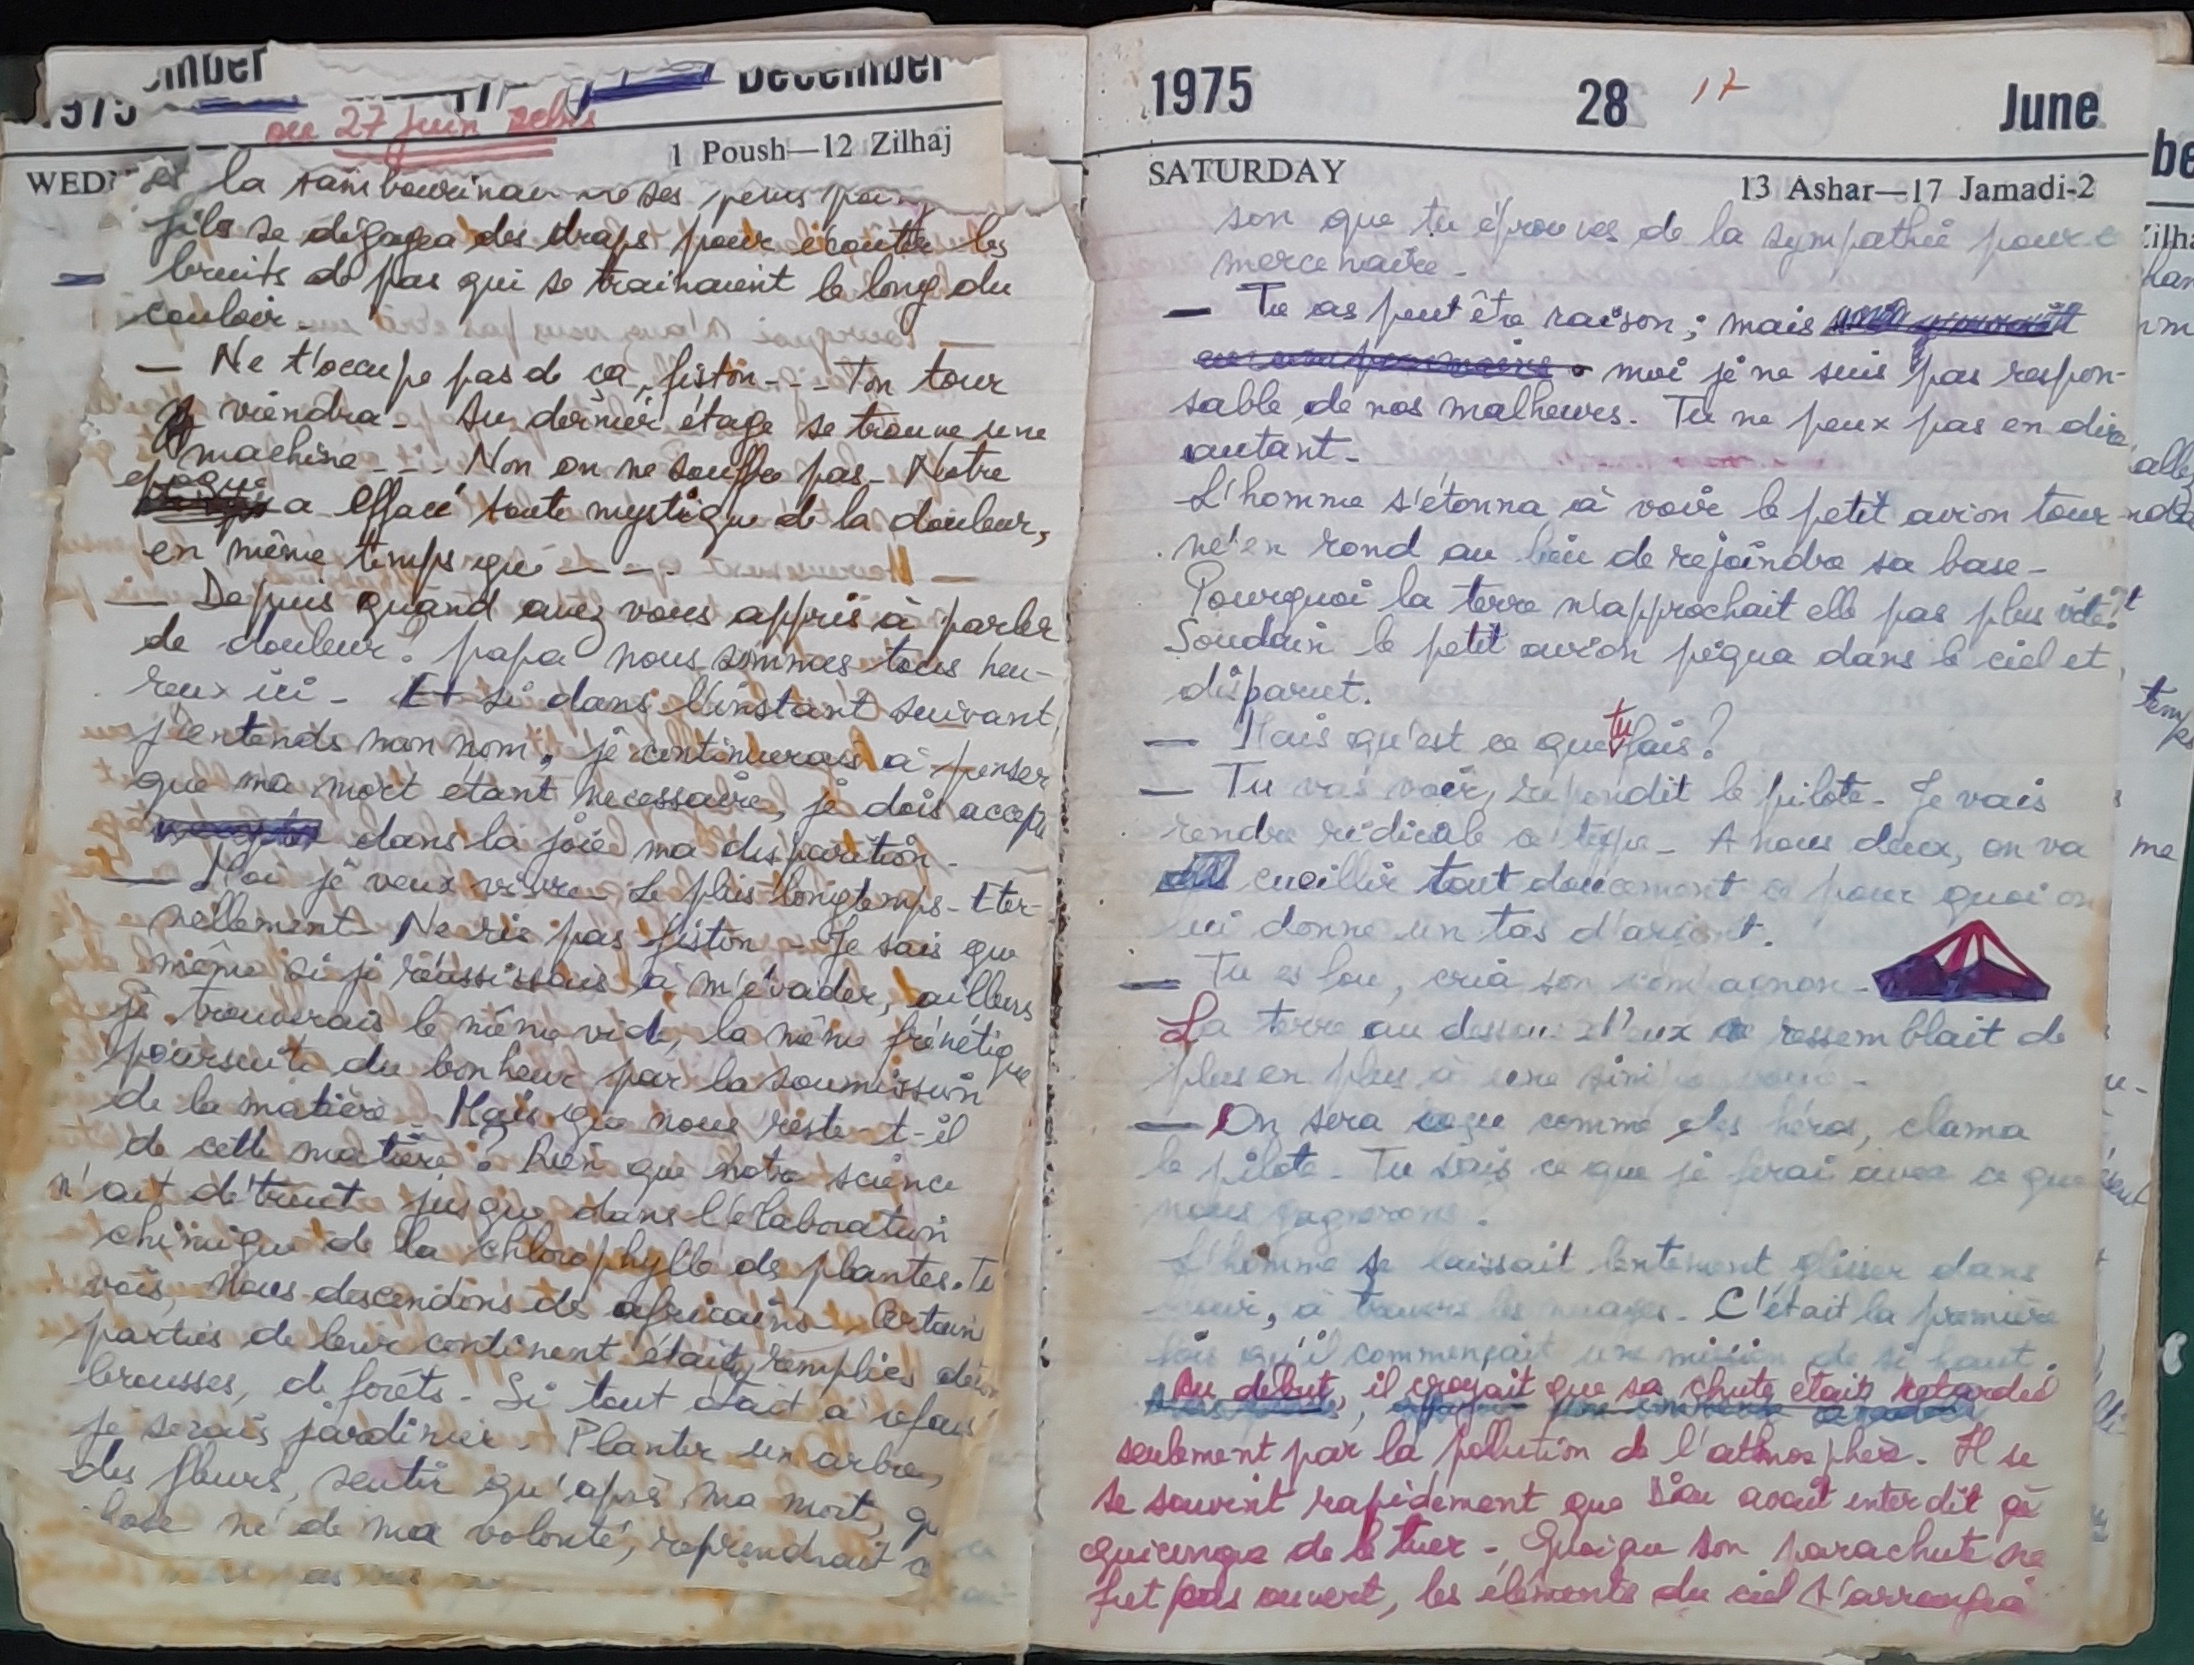 1975
December
27 juin
1 Poush—12 Zilhaj
WED
la
fils se dégagea des draps pour écouter les
bruits de pas qui se trainaient le long du
couloir.
— Ne t'occupe pas de ça, fiston--- Ton tour
viendra. Au dernier étage se trouve une
machine --- Non on ne souffre pas. Notre
époque a effacé toute mystique de la douleur,
en même temps que ----
— Depuis quand avez vous appris à parler
de douleur? papa nous sommes tous heu-
reux ici. Et si dans l'instant suivant
j'entends mon nom, je continuerais à penser
que ma mort étant necessaire, je dois accepte
dans la joie ma disparition.
— Moi je veux vivre. Le plus longtemps. Eter-
nellement. Ne ris pas fiston. Je sais que
même si je réussissais à m'évader, ailleurs
je trouverais le même vide, la même frénétique
poursuite du bonheur par la soumission
de la matière. Mais que nous reste-t-il
de cette matière? Rien que notre science
n'ait détruit jusque dans l'élaboration
chimique de la chlorophylle des plantes. Tu
vois, nous descendons des africains. Certain
parties de leur continent était remplies de
brousses, de forêts. Si tout était à refair
je serais jardinier. Planter un arbre,
des fleurs, sentir qu'après ma mort, qu
chose né de ma volonté, reprendrait
1975
28
17
June
SATURDAY
13 Ashar—17 Jamadi-2
son que tu éprouves de la sympathie pour c
mercenaire.
— Tu as peut être raison; mais
moi je ne suis pas respon-
sable de nos malheurs. Tu ne peux pas en dire
autant.
L'homme s'étonna à voir le petit avion tour-
né en rond au lieu de rejoindre sa base.
Pourquoi la terre n'approchait elle pas plus vite?
Soudain le petit avion piqua dans le ciel et
disparut.
— Mais qu'est ce que tu fais?
— Tu vas voir, répondit le pilote. Je vais
rendre ridicule ce type. A nous deux, on va
cueillir tout doucement ce pour quoi on
lui donne un tas d'argent.
— Tu es fou, cria son compagnon.
La terre au dessous d'eux ressemblait de
plus en plus à une
— On sera reçu comme des héros, clama
le pilote. Tu sais ce que je ferai avec ce que
nous gagnerons.
L'homme se laissait lentement glisser dans
l'air, à travers les nuages. C'était la première
fois qu'il commençait une mission de si haut.
Au début, il croyait que sa chute était retardée
seulement par la pollution de l'athmosphère. Il se
se souvint rapidement que Dieu avait interdit à
quiconque de le tuer. Quoique son parachute ne
fut pas ouvert, les éléments du ciel s'arrangea